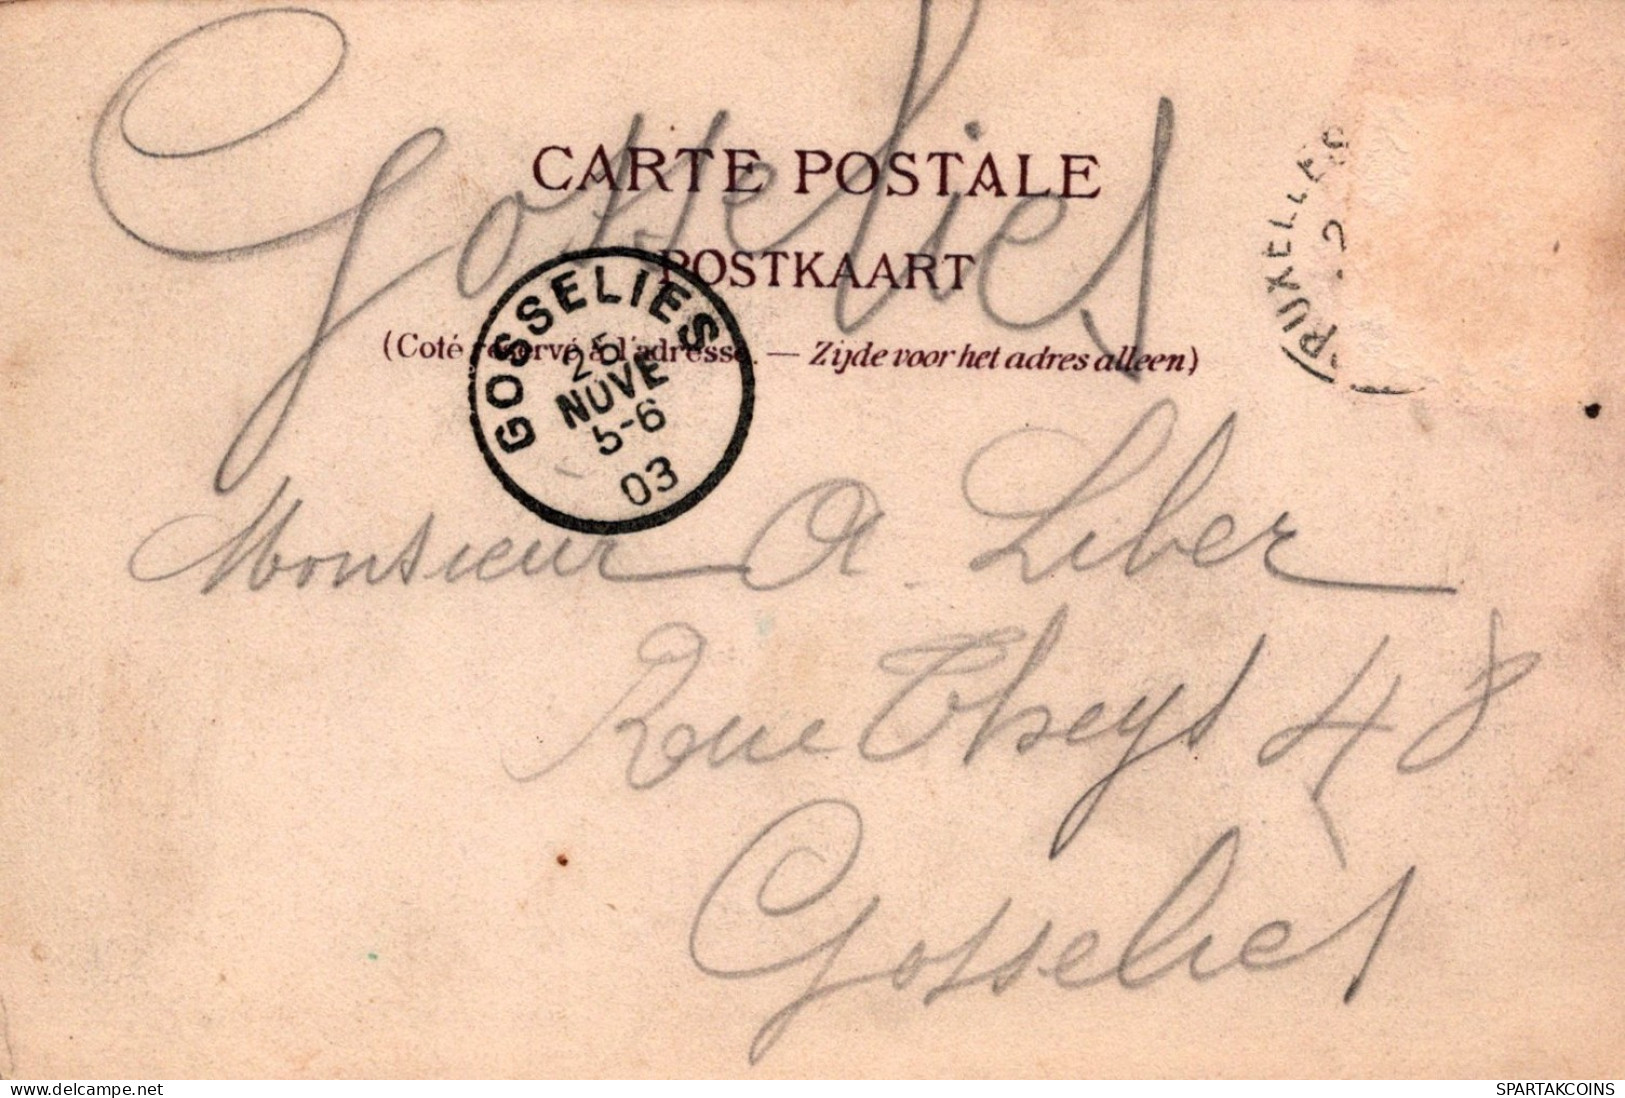 Gosselies
CARTE POSTALE
POSTKAART
(Coté réservé à l'adresse. — Zijde voor het adres alleen)
GOSSELIES
25
NOVE
5-6
03
Monsieur A. Liber
Rue Theys 48
Gosselies
https://www.delcampe.net
SPARTAKCOINS